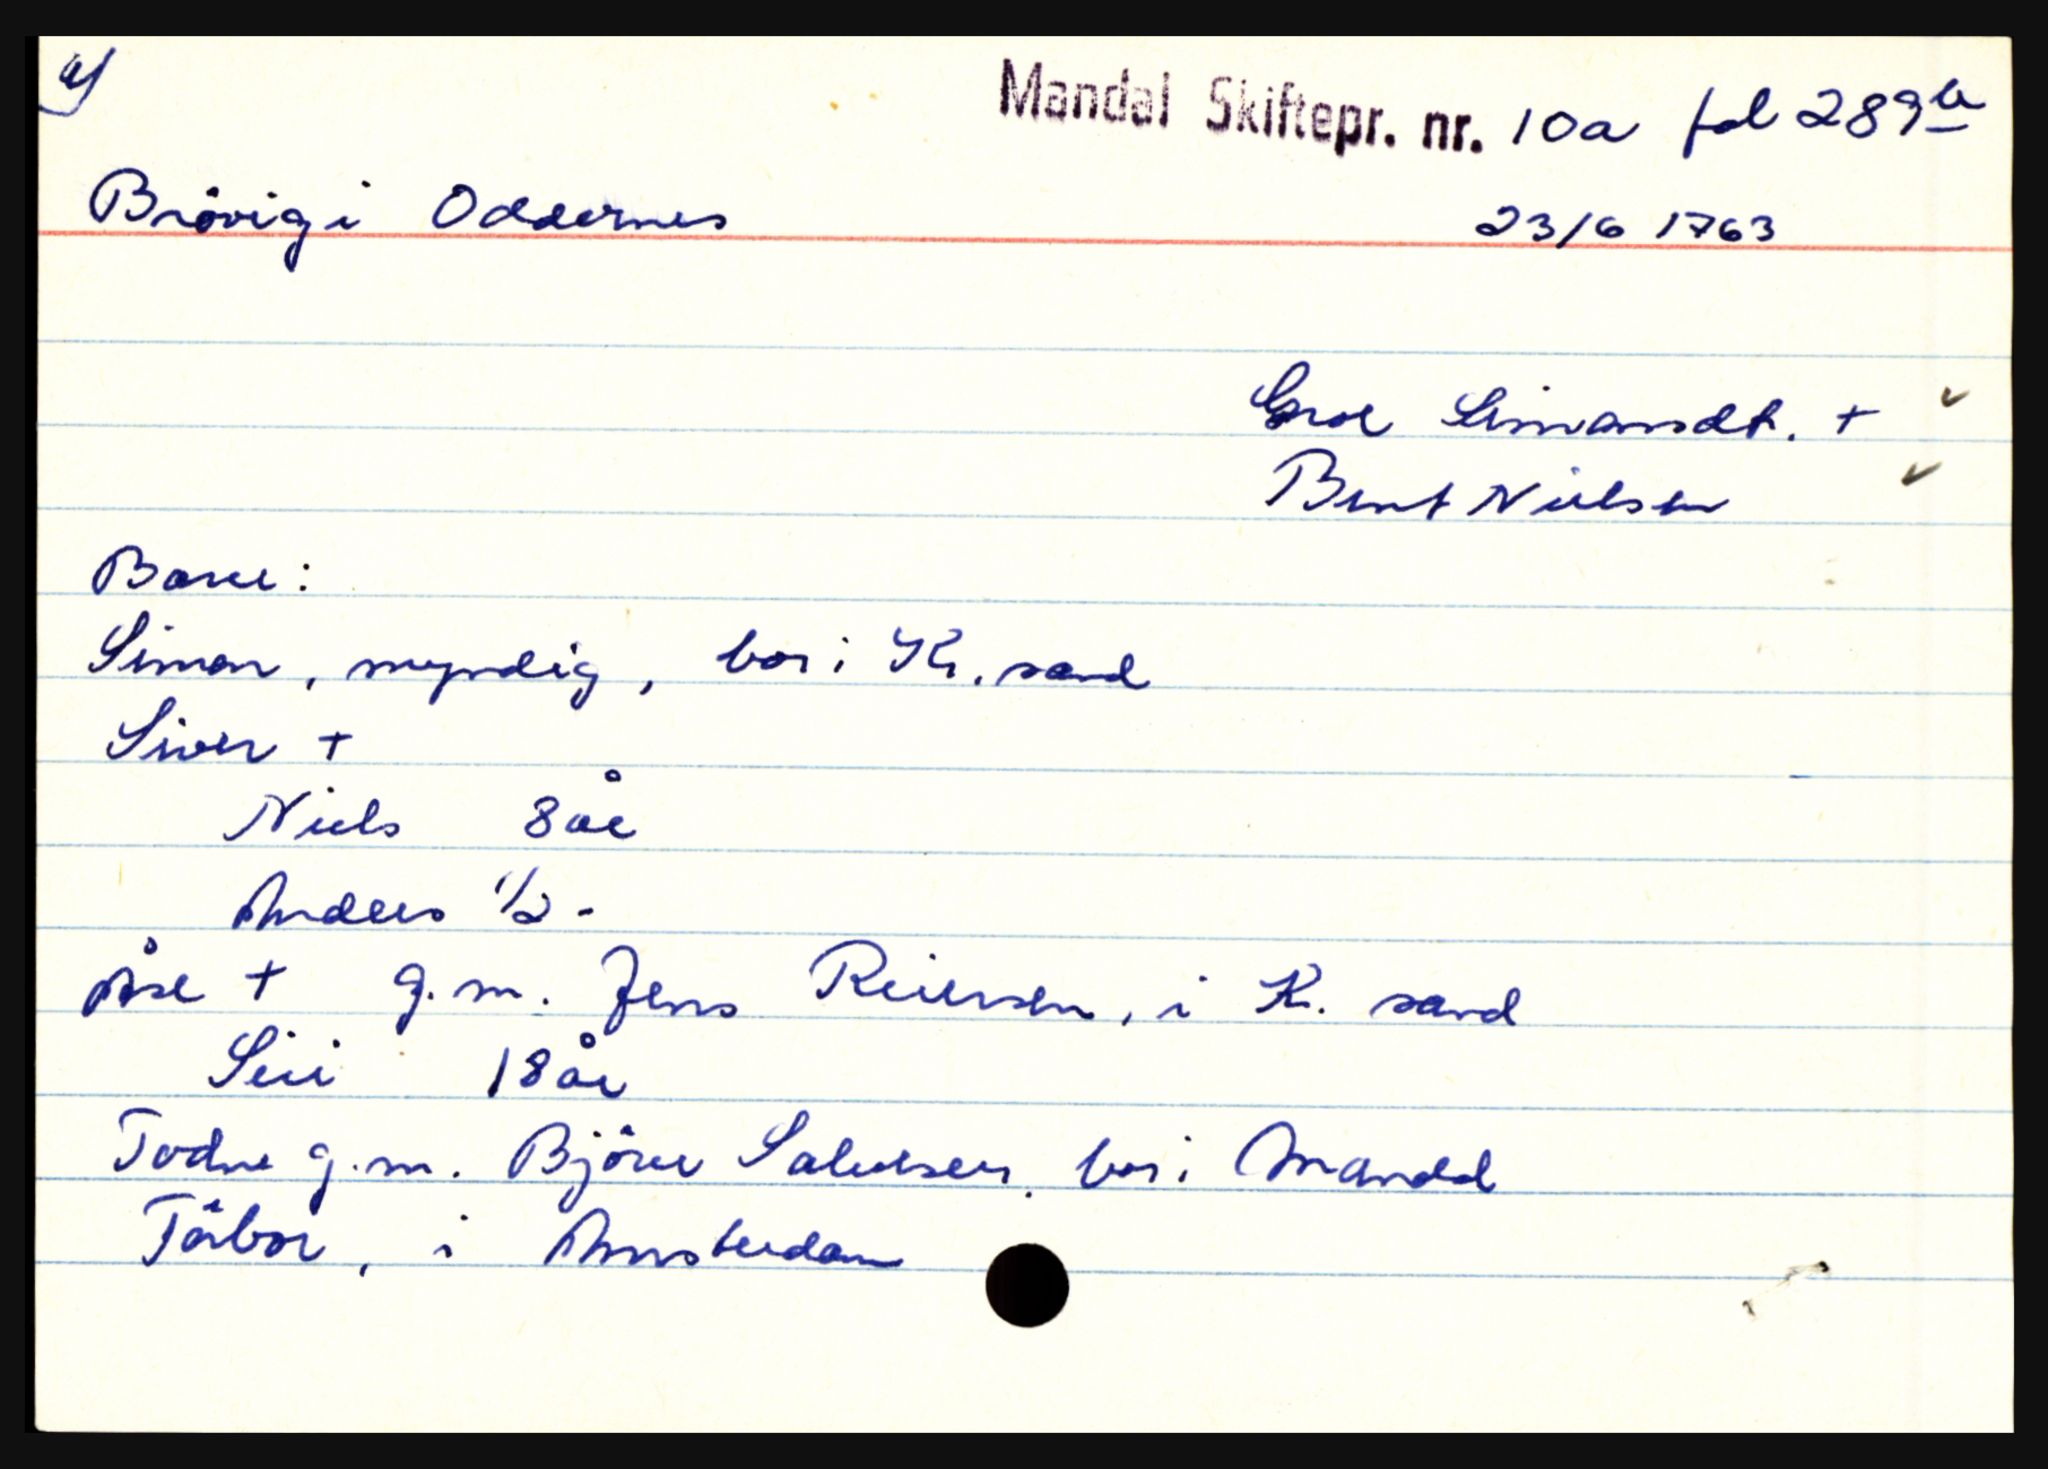 Mandal Skiftepr. nr. 10a fol 289b
Brövig i Oddernes 23/6 1763
Groe Simonsdt. +
Bent Nielsen
Barn:
Simon, myndig, bor i Kr.sand
Siver +
Niels 8 år
Anders 1/2 -
Åse + g.m. Jens Reiersen, i Kr. sand
Siri 18 år
Todne g.m. Björn Salvesen, bor i Mandal
Tårbor, i Amsterdam